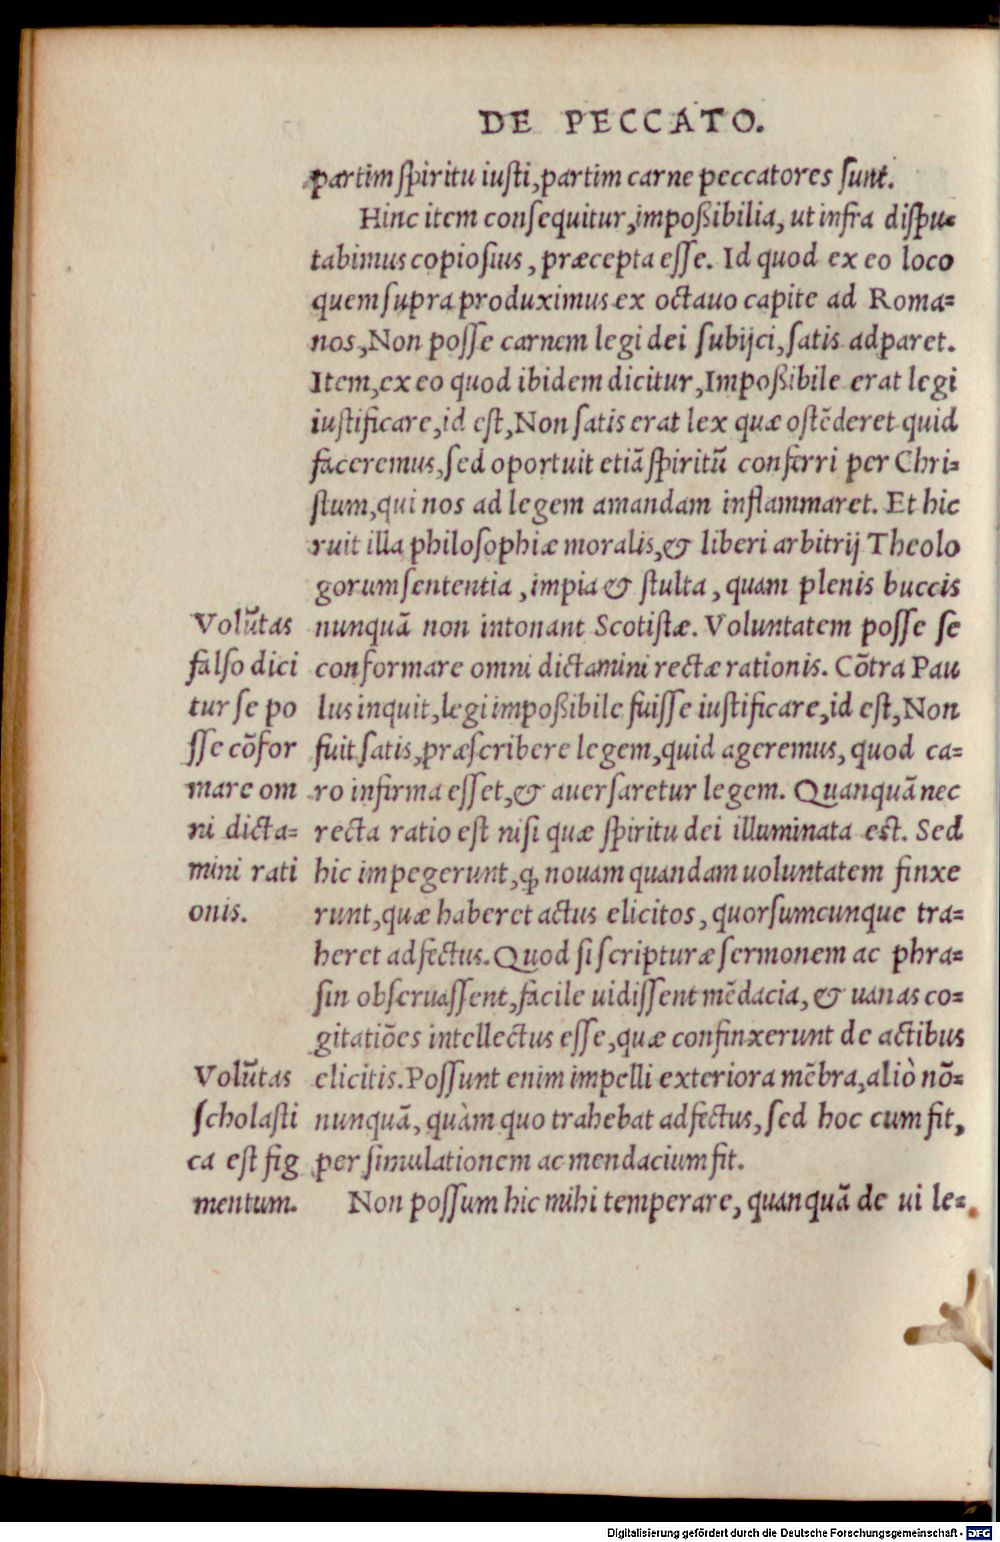 DE PECCATO.
partim spiritu iusti, partim carne peccatores sunt.
Hinc item consequitur, impoßibilia, ut infra dispu-
tabimus copiosius, præcepta esse. Id quod ex eo loco
quem supra produximus ex octauo capite ad Roma-
nos, Non posse carnem legi dei subijci, satis adparet.
Item, ex eo quod ibidem dicitur, Impoßibile erat legi
iustificare, id est, Non satis erat lex quæ ostēderet quid
faceremus, sed oportuit etiā spiritū conferri per Chri-
stum, qui nos ad legem amandam inflammaret. Et hic
ruit illa philosophiæ moralis, & liberi arbitrij Theolo
gorum sententia, impia & stulta, quam plenis buccis
nunquā non intonant Scotistæ. Voluntatem posse se
conformare omni dictamini rectæ rationis. Cōtra Pau
lus inquit, legi impoßibile fuisse iustificare, id est, Non
fuit satis, præscribere legem, quid ageremus, quod ca-
ro infirma esset, & auersaretur legem. Quanquā nec
recta ratio est nisi quæ spiritu dei illuminata est. Sed
hic impegerunt, ꝙ nouam quandam uoluntatem finxe
runt, quæ haberet actus elicitos, quorsumcunque tra-
heret adfectus. Quod si scripturæ sermonem ac phra-
sin obseruassent, facile uidissent mēdacia, & uanas co-
gitatiōes intellectus esse, quæ confinxerunt de actibus
elicitis. Possunt enim impelli exteriora mēbra, aliò nō-
nunquā, quàm quo trahebat adfectus, sed hoc cum fit,
per simulationem ac mendacium fit.
Non possum hic mihi temperare, quanquā de ui le-
Volūtas
falso dici
tur se po
sse cōfor
mare om
ni dicta-
mini rati
onis.
Volūtas
scholasti
ca est fig
mentum.
Digitalisierung gefördert durch die Deutsche Forschungsgemeinschaft - DFG